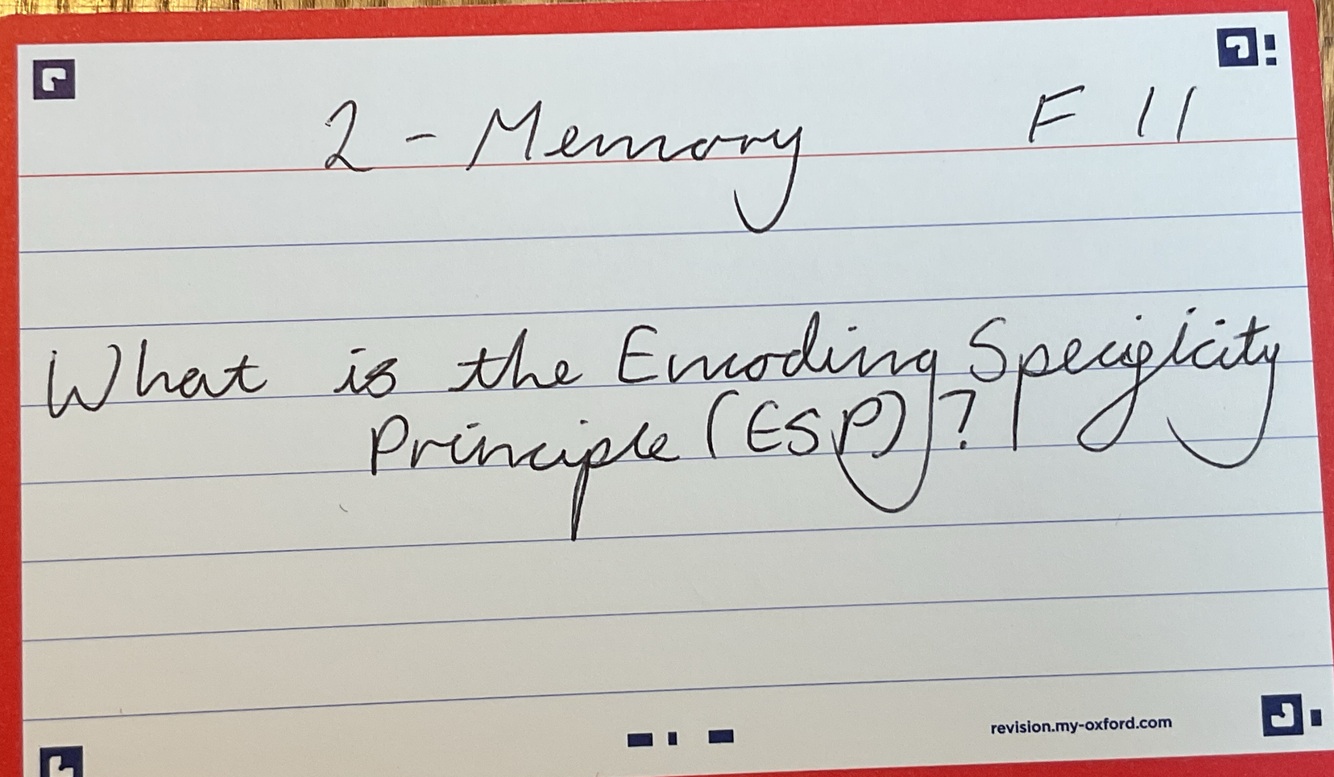 2 - Memory F 11
What is the Encoding Specificity
Principle (ESP)?
revision.my-oxford.com